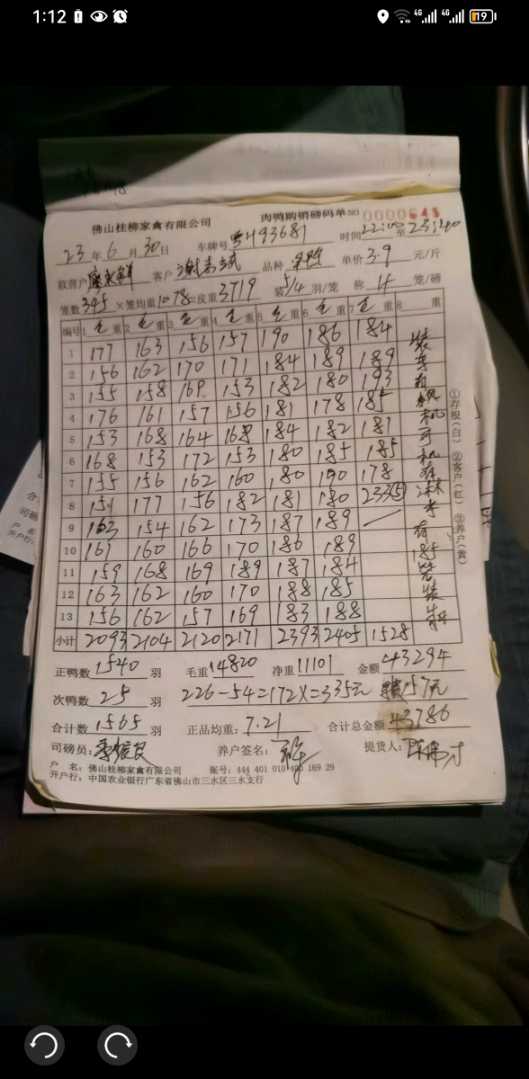 1:12
4G 4G 19
佛山桂柳家禽有限公司 肉鸭购销磅码单 NO 0000645
23年6月30日 车牌号 493681 时间 22:00 至 23:40
客户 品种 单价 3.9 元/斤
笼数 345 × 笼均重 10.78 = 皮重 3719 装 5/4 羽/笼 称 14 笼/磅
编号 1 毛重 2 毛重 3 毛重 4 毛重 5 毛重 6 毛重 7 毛重 8 重
1 177 163 156 157 190 186 184
2 156 162 170 171 184 189 189
3 155 158 169 153 182 180 193
4 176 161 157 156 181 178 185
5 153 168 164 168 184 182 181
6 168 153 172 153 180 185 185
7 155 156 162 160 180 190 178
8 151 177 156 182 181 180 233(5)
9 163 154 162 173 187 189
10 161 160 166 170 186 189
11 159 168 169 189 187 184
12 163 162 160 170 188 185
13 156 162 157 169 183 188
小计 2093 2104 2120 2171 2393 2405 1528
①存根(白) ②客户(红) ③养户(黄)
正鸭数 1540 羽 毛重 14820 净重 11101 金额 43294
次鸭数 25 羽 226-54=172X=335元 157元
合计数 1565 羽 正品均重: 7.21 合计总金额 43786
司磅员: 养户签名: 提货人:
户 名: 佛山桂柳家禽有限公司 账号: 444 401 010 400 169 29
开户行: 中国农业银行广东省佛山市三水区三水支行